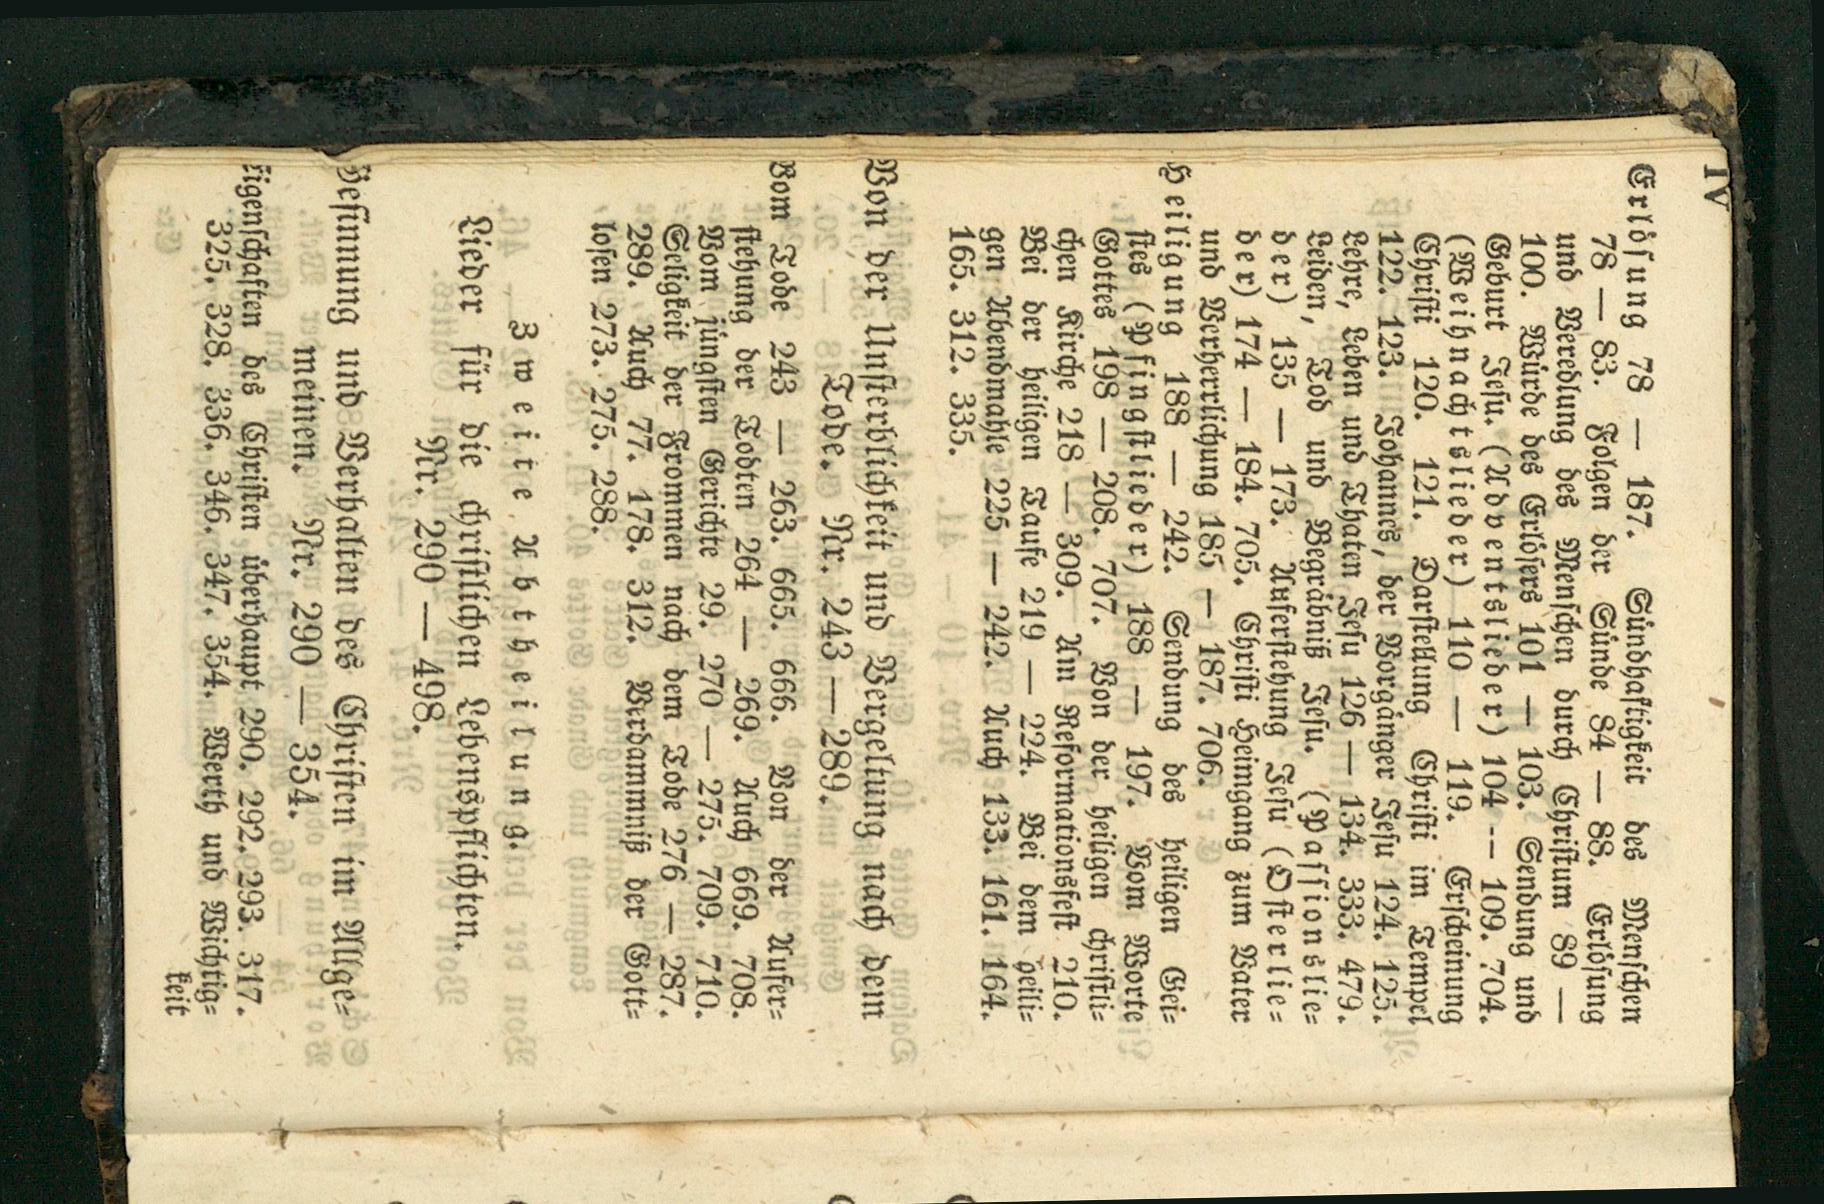 IV
Erlösung 78 — 187. Sündhaftigkeit des Menschen
78 — 83. Folgen der Sünde 84 — 88. Erlösung
und Veredlung des Menschen durch Christum 89 —
100. Würde des Erlösers 101 — 103. Sendung und
Geburt Jesu. (Adventslieder) 104 -- 109. 704.
(Weihnachtslieder) 110 — 119. Erscheinung
Christi 120. 121. Darstellung Christi im Tempel
122. 123. Johannes, der Vorgänger Jesu 124. 125.
Lehre, Leben und Thaten Jesu 126 — 134. 333. 479.
Leiden, Tod und Begräbniß Jesu. (Passionslie=
der) 135 — 173. Auferstehung Jesu (Osterlie=
der) 174 — 184. 705. Christi Heimgang zum Vater
und Verherrlichung 185 — 187. 706.
Heiligung 188 — 242. Sendung des heiligen Gei=
stes (Pfingstlieder) 188 — 197. Vom Worte
Gottes 198 — 208. 707. Von der heiligen christli=
chen Kirche 218 — 309. Am Reformationsfest 210.
Bei der heiligen Taufe 219 — 224. Bei dem heili=
gen Abendmahle 225 — 242. Auch 133. 161. 164.
165. 312. 335.
Von der Unsterblichkeit und Vergeltung nach dem
Tode. Nr. 243 — 289.
Vom Tode 243 — 263. 665. 666. Von der Aufer=
stehung der Todten 264 — 269. Auch 669. 708.
Vom jüngsten Gerichte 29. 270 — 275. 709. 710.
Seligkeit der Frommen nach dem Tode 276 — 287.
289. Auch 77. 178. 312. Verdammniß der Gott=
losen 273. 275. 288.
Zweite Abtheilung.
Lieder für die christlichen Lebenspflichten.
Nr. 290 — 498.
Gesinnung und Verhalten des Christen im Allge=
meinen. Nr. 290 — 354.
Eigenschaften des Christen überhaupt 290. 292. 293. 317.
325. 328. 336. 346. 347. 354. Werth und Wichtig=
keit